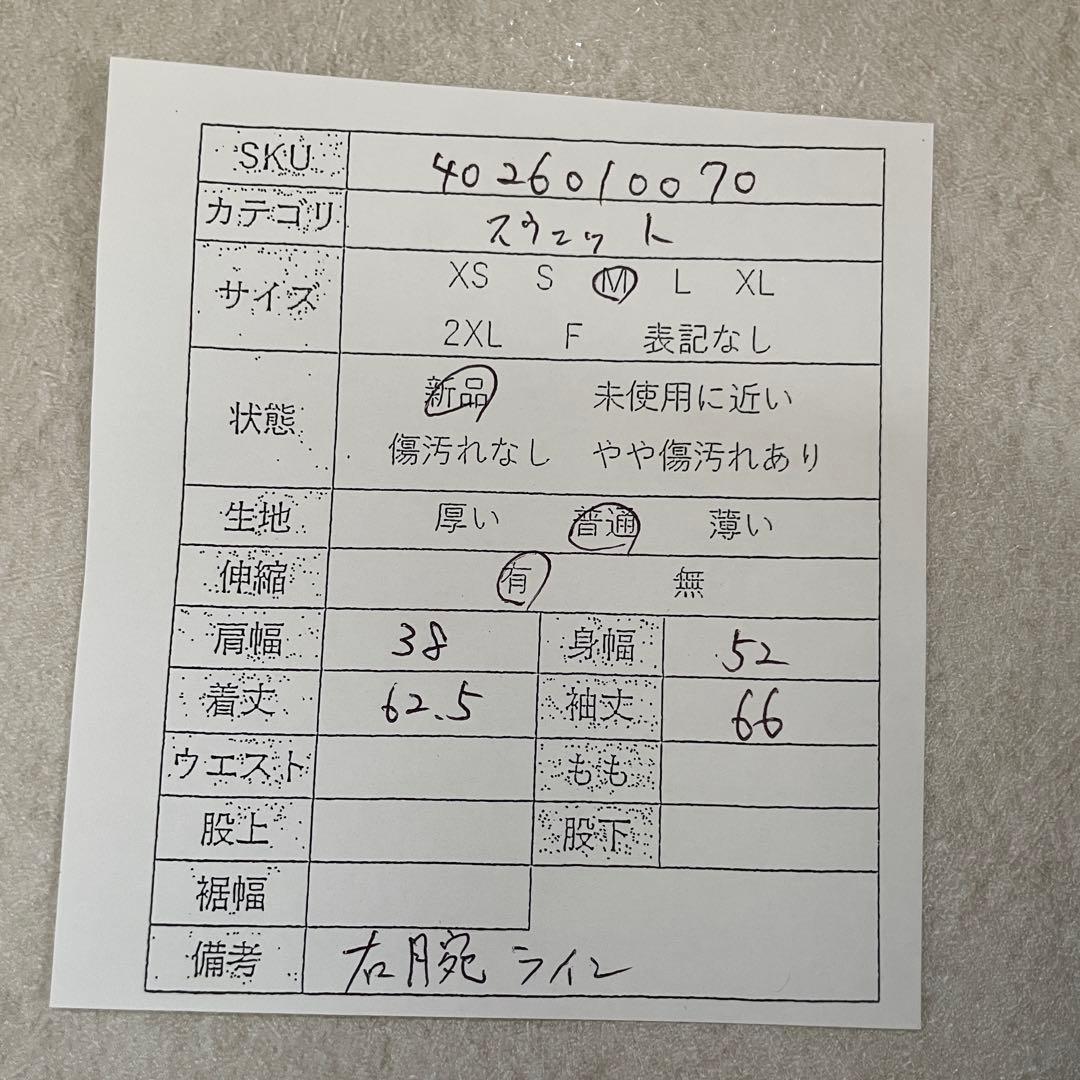 SKU 4026010070
カテゴリ スウェット
サイズ XS S M L XL
2XL F 表記なし
状態 新品 未使用に近い
傷汚れなし やや傷汚れあり
生地 厚い 普通 薄い
伸縮 有 無
肩幅 38 身幅 52
着丈 62.5 袖丈 66
ウエスト もも
股上 股下
裾幅
備考 右腕 ライン